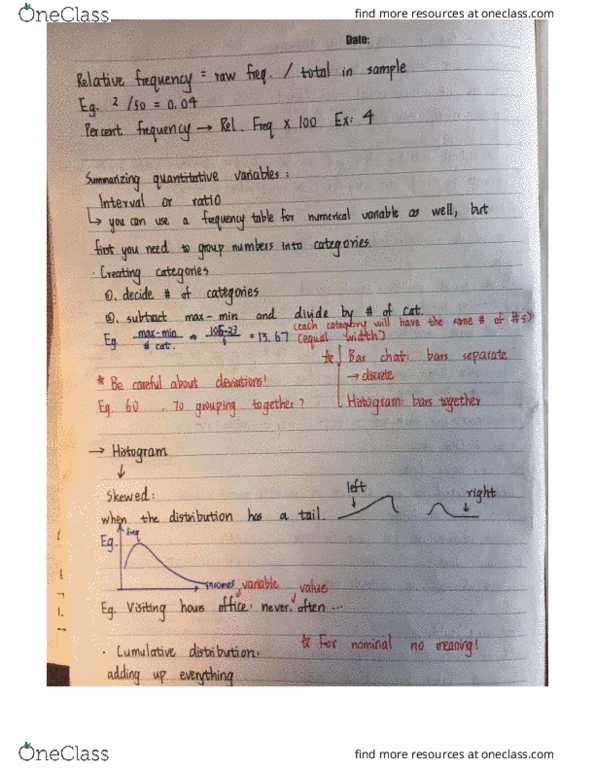 OneClass
find more resources at oneclass.com
Date:
Relative frequency = raw freq. / total in sample
Eg. 2/50 = 0.04
Percent frequency → Rel. Freq x 100 Ex: 4
Summarizing quantitative variables:
Interval or ratio
↳ you can use a frequency table for numerical variable as well, but
first you need to group numbers into categories.
· Creating categories
①. decide # of categories
②. subtract max-min and divide by # of cat.
(each category will have the same # of #s)
Eg max-min / # cat. ⇒ 105-23 / 6 = 13.67 (equal width)
* Bar chat: bars separate
→ discrete
* Be careful about deviations!
Eg. 60 . 70 grouping together? Histogram: bars together
→ Histogram
↓
Skewed: left right
when the distribution has a tail.
Eg. freq
incomes variable value
Eg. Visiting hours office: never. often ...
* For nominal no meaning!
· Cumulative distribution:
adding up everything
OneClass
find more resources at oneclass.com